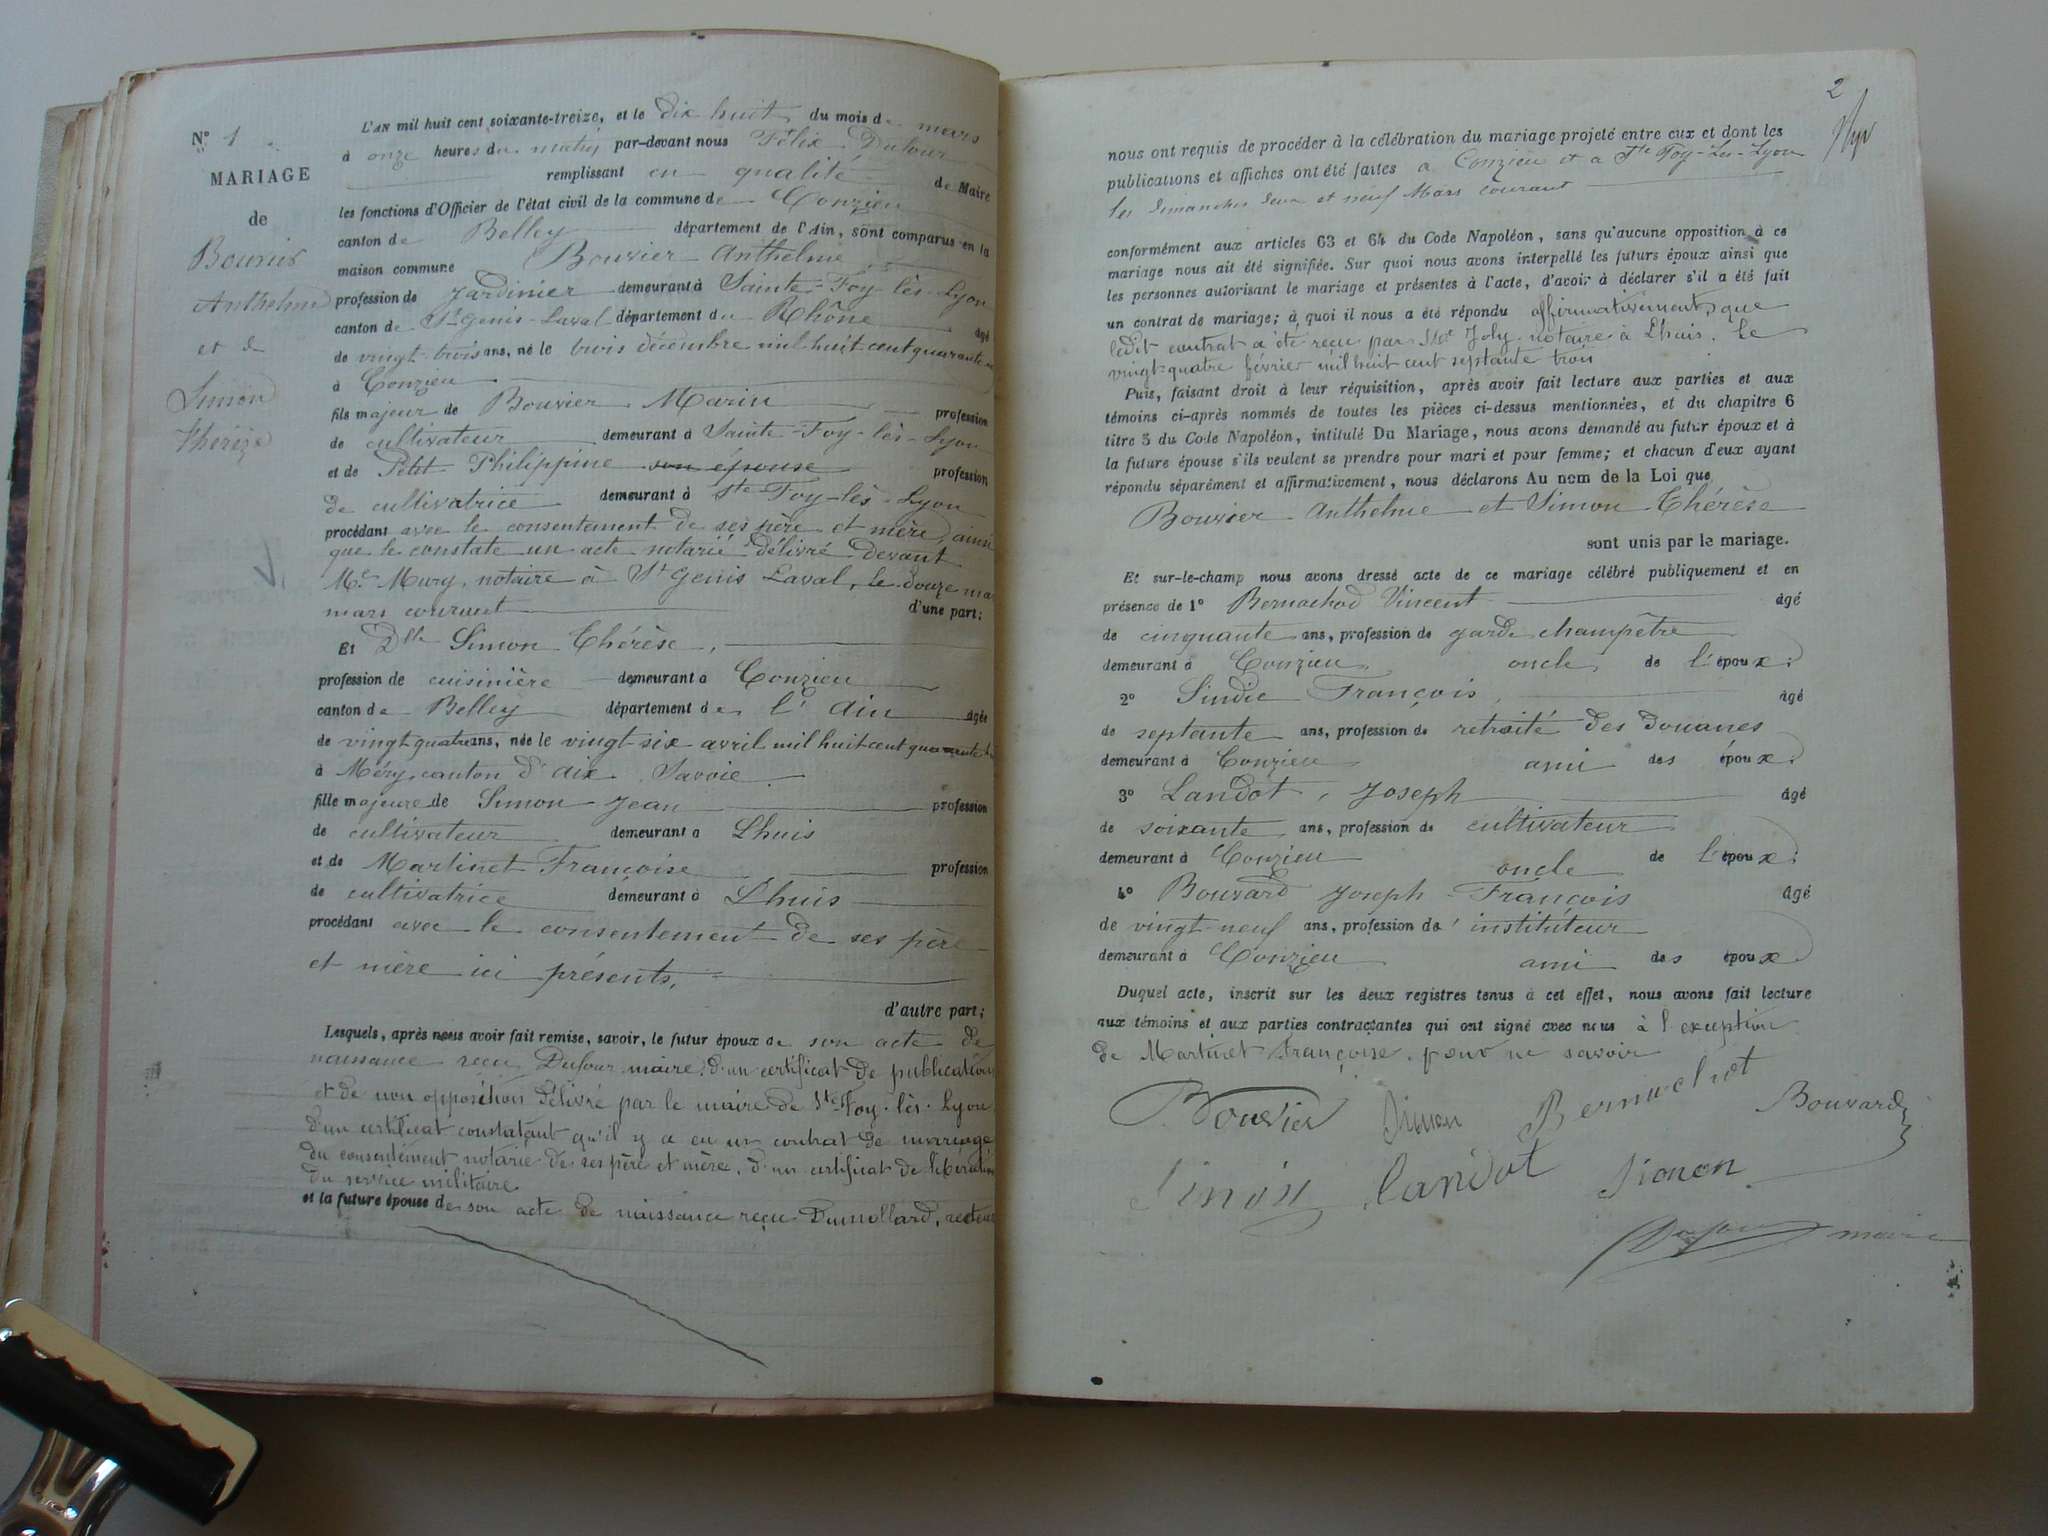 N° 1
MARIAGE
de
Bouvier
Anthelme
et de
Simon
Thérèze
L'AN mil huit cent soixante-treize, et le dix huit du mois de mars
à onze heures du matin par-devant nous Félix Dufour
remplissant en qualité de Maire
les fonctions d'Officier de l'état civil de la commune de Conzieu
canton de Belley département de l'Ain, sont comparus en la
maison commune Bouvier Anthelme
profession de jardinier demeurant à Sainte-Foy-lès-Lyon
canton de St Genis-Laval département du Rhône âgé
de vingt-trois ans, né le trois décembre mil huit cent quarante
à Conzieu
fils majeur de Bouvier Marin profession
de cultivateur demeurant à Sainte-Foy-lès-Lyon
et de Petit Philippine son épouse profession
de cultivatrice demeurant à Ste-Foy-lès-Lyon
procédant avec le consentement de ses père et mère, ainsi
que le constate un acte notarié délivré devant
Me Mury, notaire à St Genis Laval, le douze
mars courant d'une part;
Et Dlle Simon Thérèse,
profession de cuisinière demeurant à Conzieu
canton de Belley département de l'Ain âgée
de vingt quatre ans, née le vingt six avril mil huit cent quarante
à Méry, canton d'Aix Savoie
fille majeure de Simon Jean profession
de cultivateur demeurant à Lhuis
et de Martinet Françoise profession
de cultivatrice demeurant à Lhuis
procédant avec le consentement de ses père
et mère ici présents,
d'autre part;
Lesquels, après nous avoir fait remise, savoir, le futur époux de son acte de
naissance reçu Dufour maire, d'un certificat de publication
et de non opposition délivré par le maire de Ste-Foy-lès-Lyon,
d'un certificat constatant qu'il y a eu un contrat de mariage
du consentement notarié de ses père et mère, d'un certificat de libération
du service militaire
et la future épouse de son acte de naissance reçu Dumollard, recteur
2
nous ont requis de procéder à la célébration du mariage projeté entre eux et dont les
publications et affiches ont été faites à Conzieu et à Ste Foy-Lès-Lyon
les dimanches deux et neuf Mars courant
conformément aux articles 63 et 64 du Code Napoléon, sans qu'aucune opposition à ce
mariage nous ait été signifiée. Sur quoi nous avons interpellé les futurs époux ainsi que
les personnes autorisant le mariage et présentes à l'acte, d'avoir à déclarer s'il a été fait
un contrat de mariage; à quoi il nous a été répondu affirmativement, que
ledit contrat a été reçu par Me Joly notaire à Lhuis. Le
vingt-quatre février mil huit cent septante trois
Puis, faisant droit à leur réquisition, après avoir fait lecture aux parties et aux
témoins ci-après nommés de toutes les pièces ci-dessus mentionnées, et du chapitre 6
titre 5 du Code Napoléon, intitulé Du Mariage, nous avons demandé au futur époux et à
la future épouse s'ils veulent se prendre pour mari et pour femme; et chacun d'eux ayant
répondu séparément et affirmativement, nous déclarons Au nom de la Loi que
Bouvier Anthelme et Simon Thérèse
sont unis par le mariage.
Et sur-le-champ nous avons dressé acte de ce mariage célébré publiquement et en
présence de 1° Bernachod Vincent âgé
de cinquante ans, profession de garde champêtre
demeurant à Conzieu oncle de l'époux;
2° Sindic François, âgé
de septante ans, profession de retraité des Douanes
demeurant à Conzieu ami des époux;
3° Landot, Joseph âgé
de soixante ans, profession de cultivateur
demeurant à Conzieu oncle de l'époux;
4° Bouvard Joseph François âgé
de vingt-neuf ans, profession de instituteur
demeurant à Conzieu ami des époux
Duquel acte, inscrit sur les deux registres tenus à cet effet, nous avons fait lecture
aux témoins et aux parties contractantes qui ont signé avec nous à l'exception
de Martinet Françoise, pour ne savoir
Bouvier Simon Bernachot Bouvard
landot Simon
Dufour maire